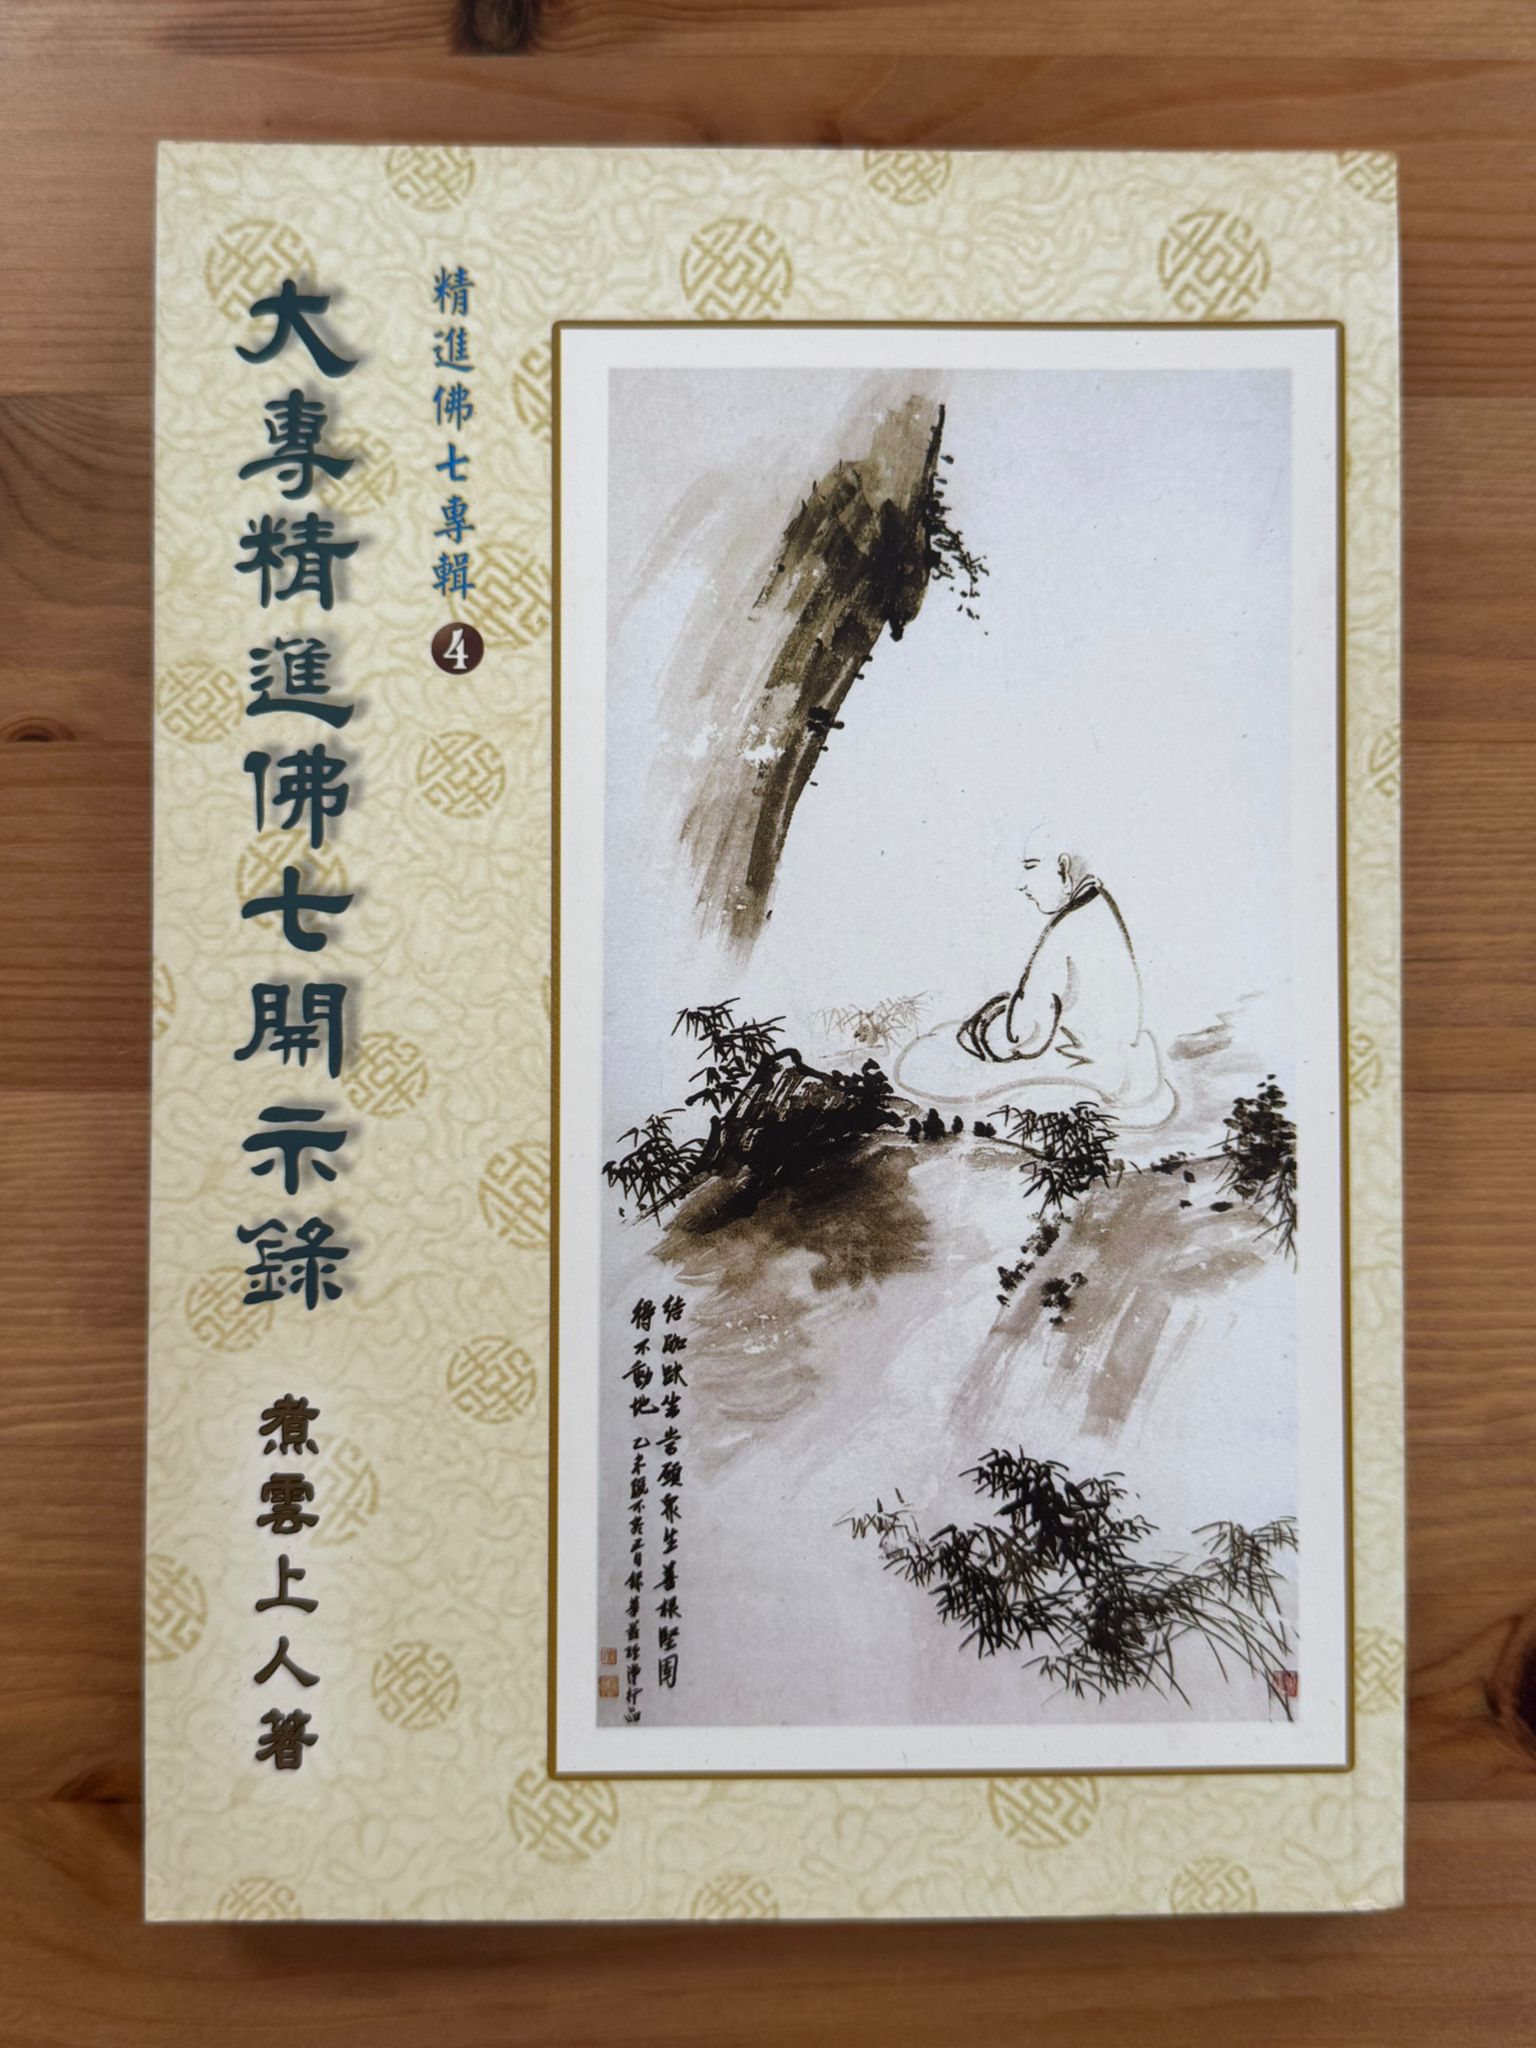 精進佛七專輯4
大專精進佛七開示錄
煮雲上人著
結跏趺坐當願眾生善根堅固
得不動地